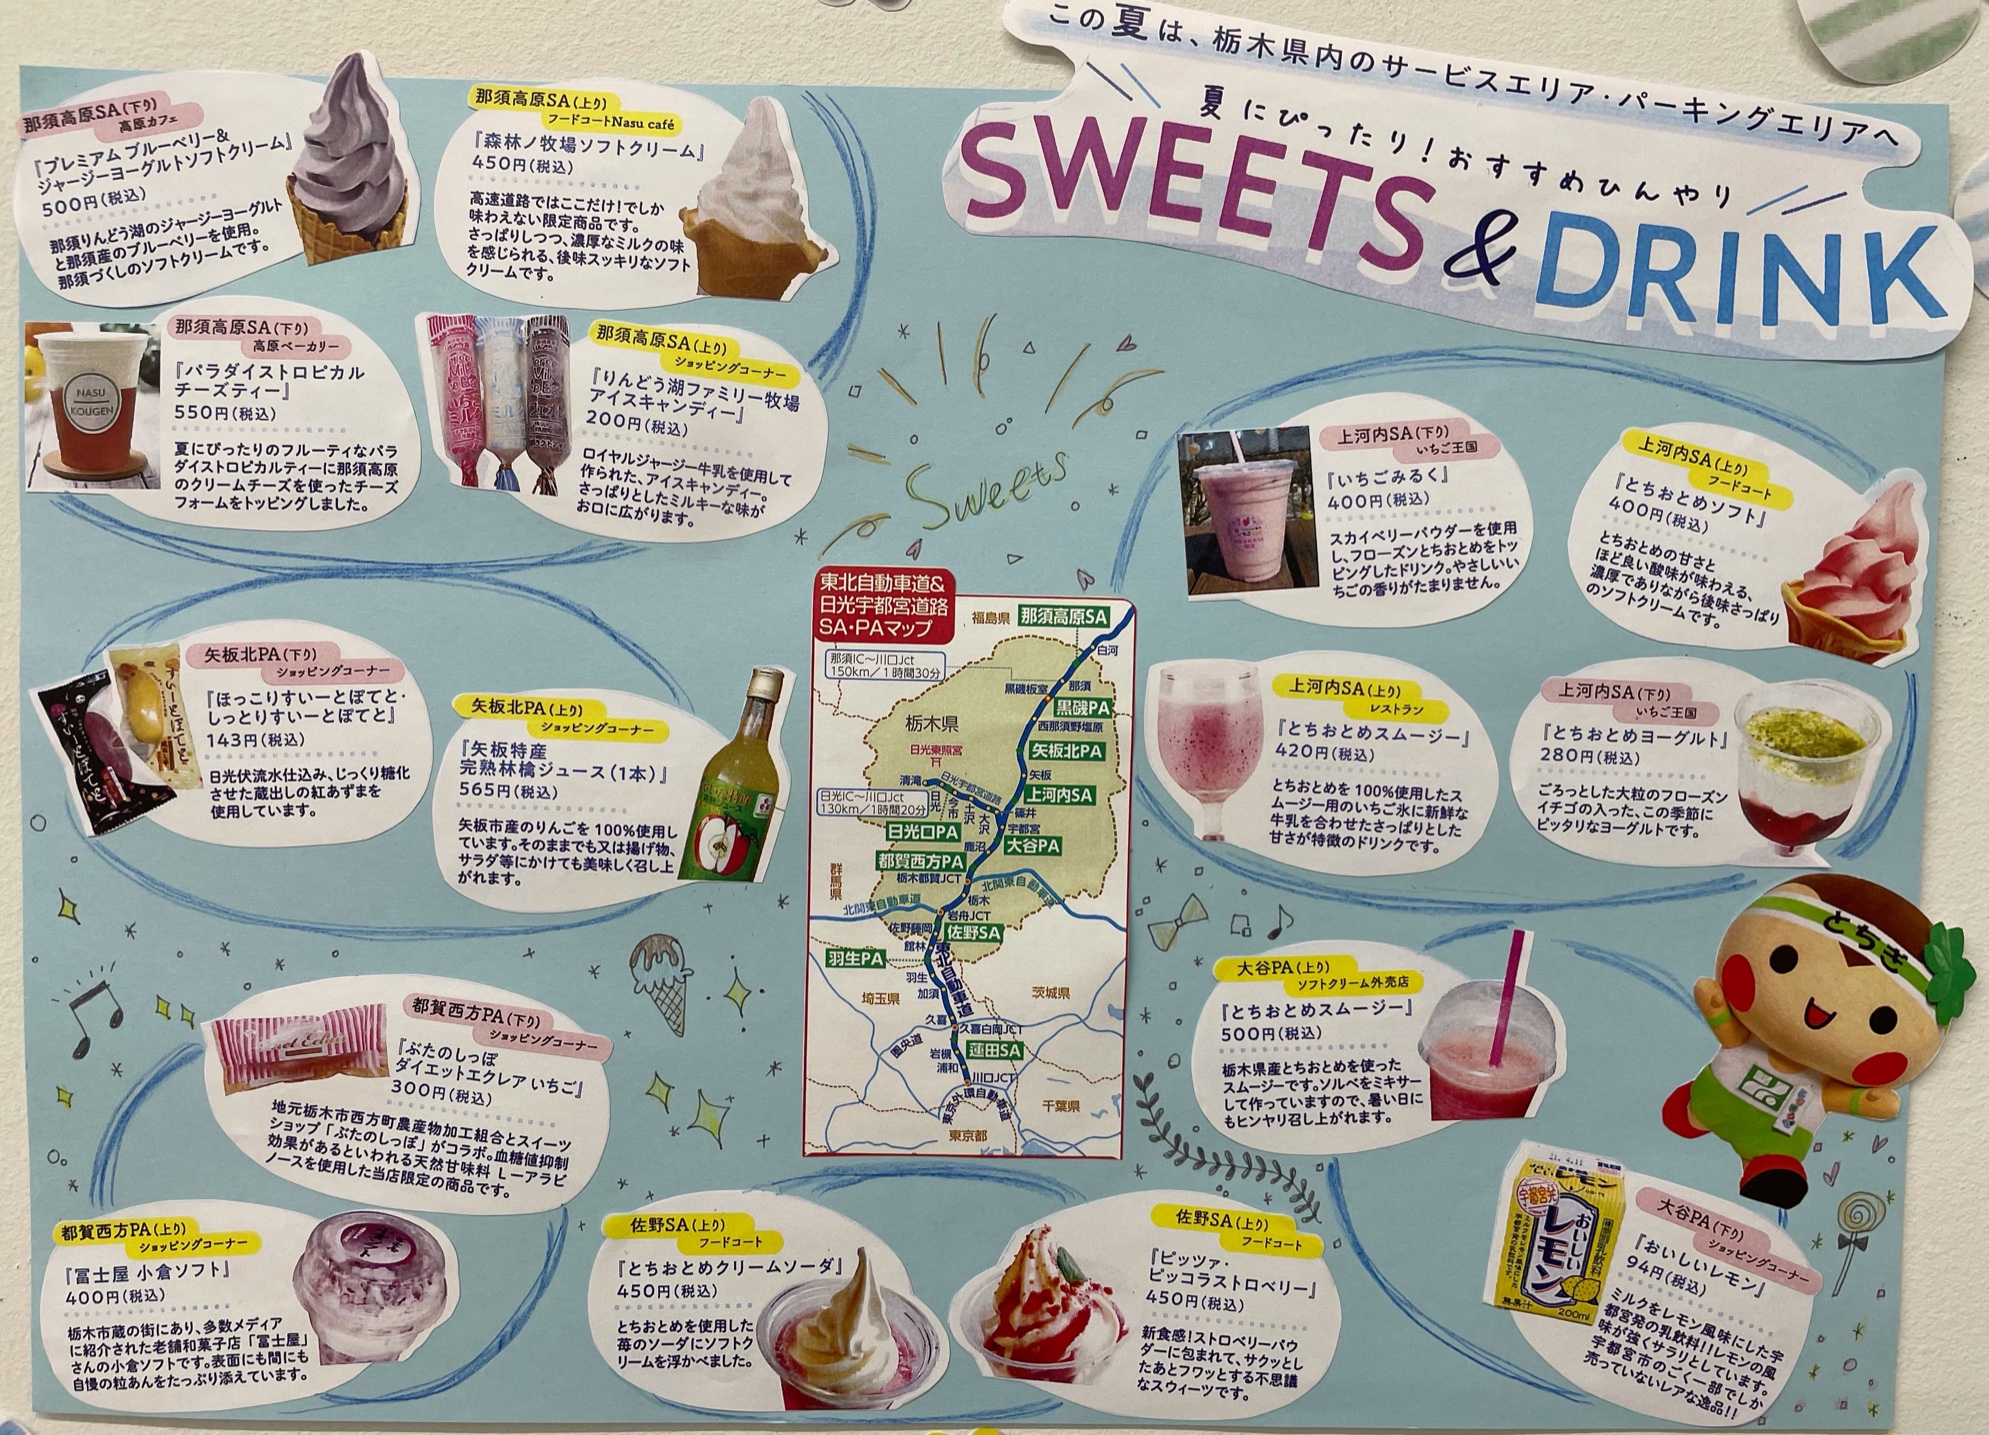 この夏は、栃木県内のサービスエリア・パーキングエリアへ
夏にぴったり！おすすめひんやり
SWEETS & DRINK
那須高原SA(下り)
高原カフェ
『プレミアム ブルーベリー&
ジャージーヨーグルトソフトクリーム』
500円(税込)
那須りんどう湖のジャージーヨーグルト
と那須産のブルーベリーを使用。
那須づくしのソフトクリームです。
那須高原SA(上り)
フードコートNasu café
『森林ノ牧場ソフトクリーム』
450円(税込)
高速道路ではここだけ！でしか
味わえない限定商品です。
さっぱりしつつ、濃厚なミルクの味
を感じられる、後味スッキリなソフト
クリームです。
那須高原SA(下り)
高原ベーカリー
『パラダイストロピカル
チーズティー』
550円(税込)
夏にぴったりのフルーティなパラ
ダイストロピカルティーに那須高原
のクリームチーズを使ったチーズ
フォームをトッピングしました。
NASU
KOUGEN
那須高原SA(上り)
ショッピングコーナー
『りんどう湖ファミリー牧場
アイスキャンディー』
200円(税込)
ロイヤルジャージー牛乳を使用して
作られた、アイスキャンディー。
さっぱりとしたミルキーな味が
お口に広がります。
Sweets
上河内SA(下り)
いちご王国
『いちごみるく』
400円(税込)
スカイベリーパウダーを使用
し、フローズンとちおとめをトッ
ピングしたドリンク。やさしいい
ちごの香りがたまりません。
上河内SA(上り)
フードコート
『とちおとめソフト』
400円(税込)
とちおとめの甘さと
ほど良い酸味が味わえる、
濃厚でありながら後味さっぱり
のソフトクリームです。
矢板北PA(下り)
ショッピングコーナー
『ほっこりすいーとぽてと・
しっとりすいーとぽてと』
143円(税込)
日光伏流水仕込み、じっくり糖化
させた蔵出しの紅あずまを
使用しています。
矢板北PA(上り)
ショッピングコーナー
『矢板特産
完熟林檎ジュース(1本)』
565円(税込)
矢板市産のりんごを100%使用し
ています。そのままでも又は揚げ物、
サラダ等にかけても美味しく召し上
がれます。
上河内SA(上り)
レストラン
『とちおとめスムージー』
420円(税込)
とちおとめを100%使用したス
ムージー用のいちご氷に新鮮な
牛乳を合わせたさっぱりとした
甘さが特徴のドリンクです。
上河内SA(下り)
いちご王国
『とちおとめヨーグルト』
280円(税込)
ごろっとした大粒のフローズン
イチゴの入った、この季節に
ピッタリなヨーグルトです。
東北自動車道&
日光宇都宮道路
SA・PAマップ
福島県
那須高原SA
白河
那須IC〜川口Jct
150km／1時間30分
那須
黒磯板室
黒磯PA
栃木県
西那須野塩原
矢板北PA
日光東照宮
矢板
清滝
日光宇都宮道路
上河内SA
日光IC〜川口Jct
130km／1時間20分
日光
今市
土沢
大沢
篠井
宇都宮
日光口PA
鹿沼
大谷PA
都賀西方PA
栃木都賀JCT
北関東自動車道
群馬県
栃木
北関東自動車道
岩舟JCT
佐野藤岡
佐野SA
館林
羽生PA
東北自動車道
羽生
加須
埼玉県
茨城県
久喜
久喜白岡JCT
圏央道
岩槻
蓮田SA
浦和
川口JCT
東京外環自動車道
千葉県
東京都
都賀西方PA(下り)
ショッピングコーナー
『ぶたのしっぽ
ダイエットエクレア いちご』
300円(税込)
地元栃木市西方町農産物加工組合とスイーツ
ショップ「ぶたのしっぽ」がコラボ。血糖値抑制
効果があるといわれる天然甘味料 L－アラビ
ノースを使用した当店限定の商品です。
大谷PA(上り)
ソフトクリーム外売店
『とちおとめスムージー』
500円(税込)
栃木県産とちおとめを使った
スムージーです。ソルベをミキサー
して作っていますので、暑い日に
もヒンヤリ召し上がれます。
とちぎ
都賀西方PA(上り)
ショッピングコーナー
『冨士屋 小倉ソフト』
400円(税込)
栃木市蔵の街にあり、多数メディア
に紹介された老舗和菓子店「冨士屋」
さんの小倉ソフトです。表面にも間にも
自慢の粒あんをたっぷり添えています。
佐野SA(上り)
フードコート
『とちおとめクリームソーダ』
450円(税込)
とちおとめを使用した
苺のソーダにソフトク
リームを浮かべました。
佐野SA(上り)
フードコート
『ピッツァ・
ピッコラストロベリー』
450円(税込)
新食感！ストロベリーパウ
ダーに包まれて、サクッとし
たあとフワッとする不思議
なスウィーツです。
大谷PA(下り)
ショッピングコーナー
『おいしいレモン』
94円(税込)
ミルクをレモン風味にした宇
都宮発の乳飲料！！レモンの風
味が強くサラリとしています。
宇都宮市のごく一部でしか
売っていないレアな逸品！！
おいしい
レモン
無果汁
200ml